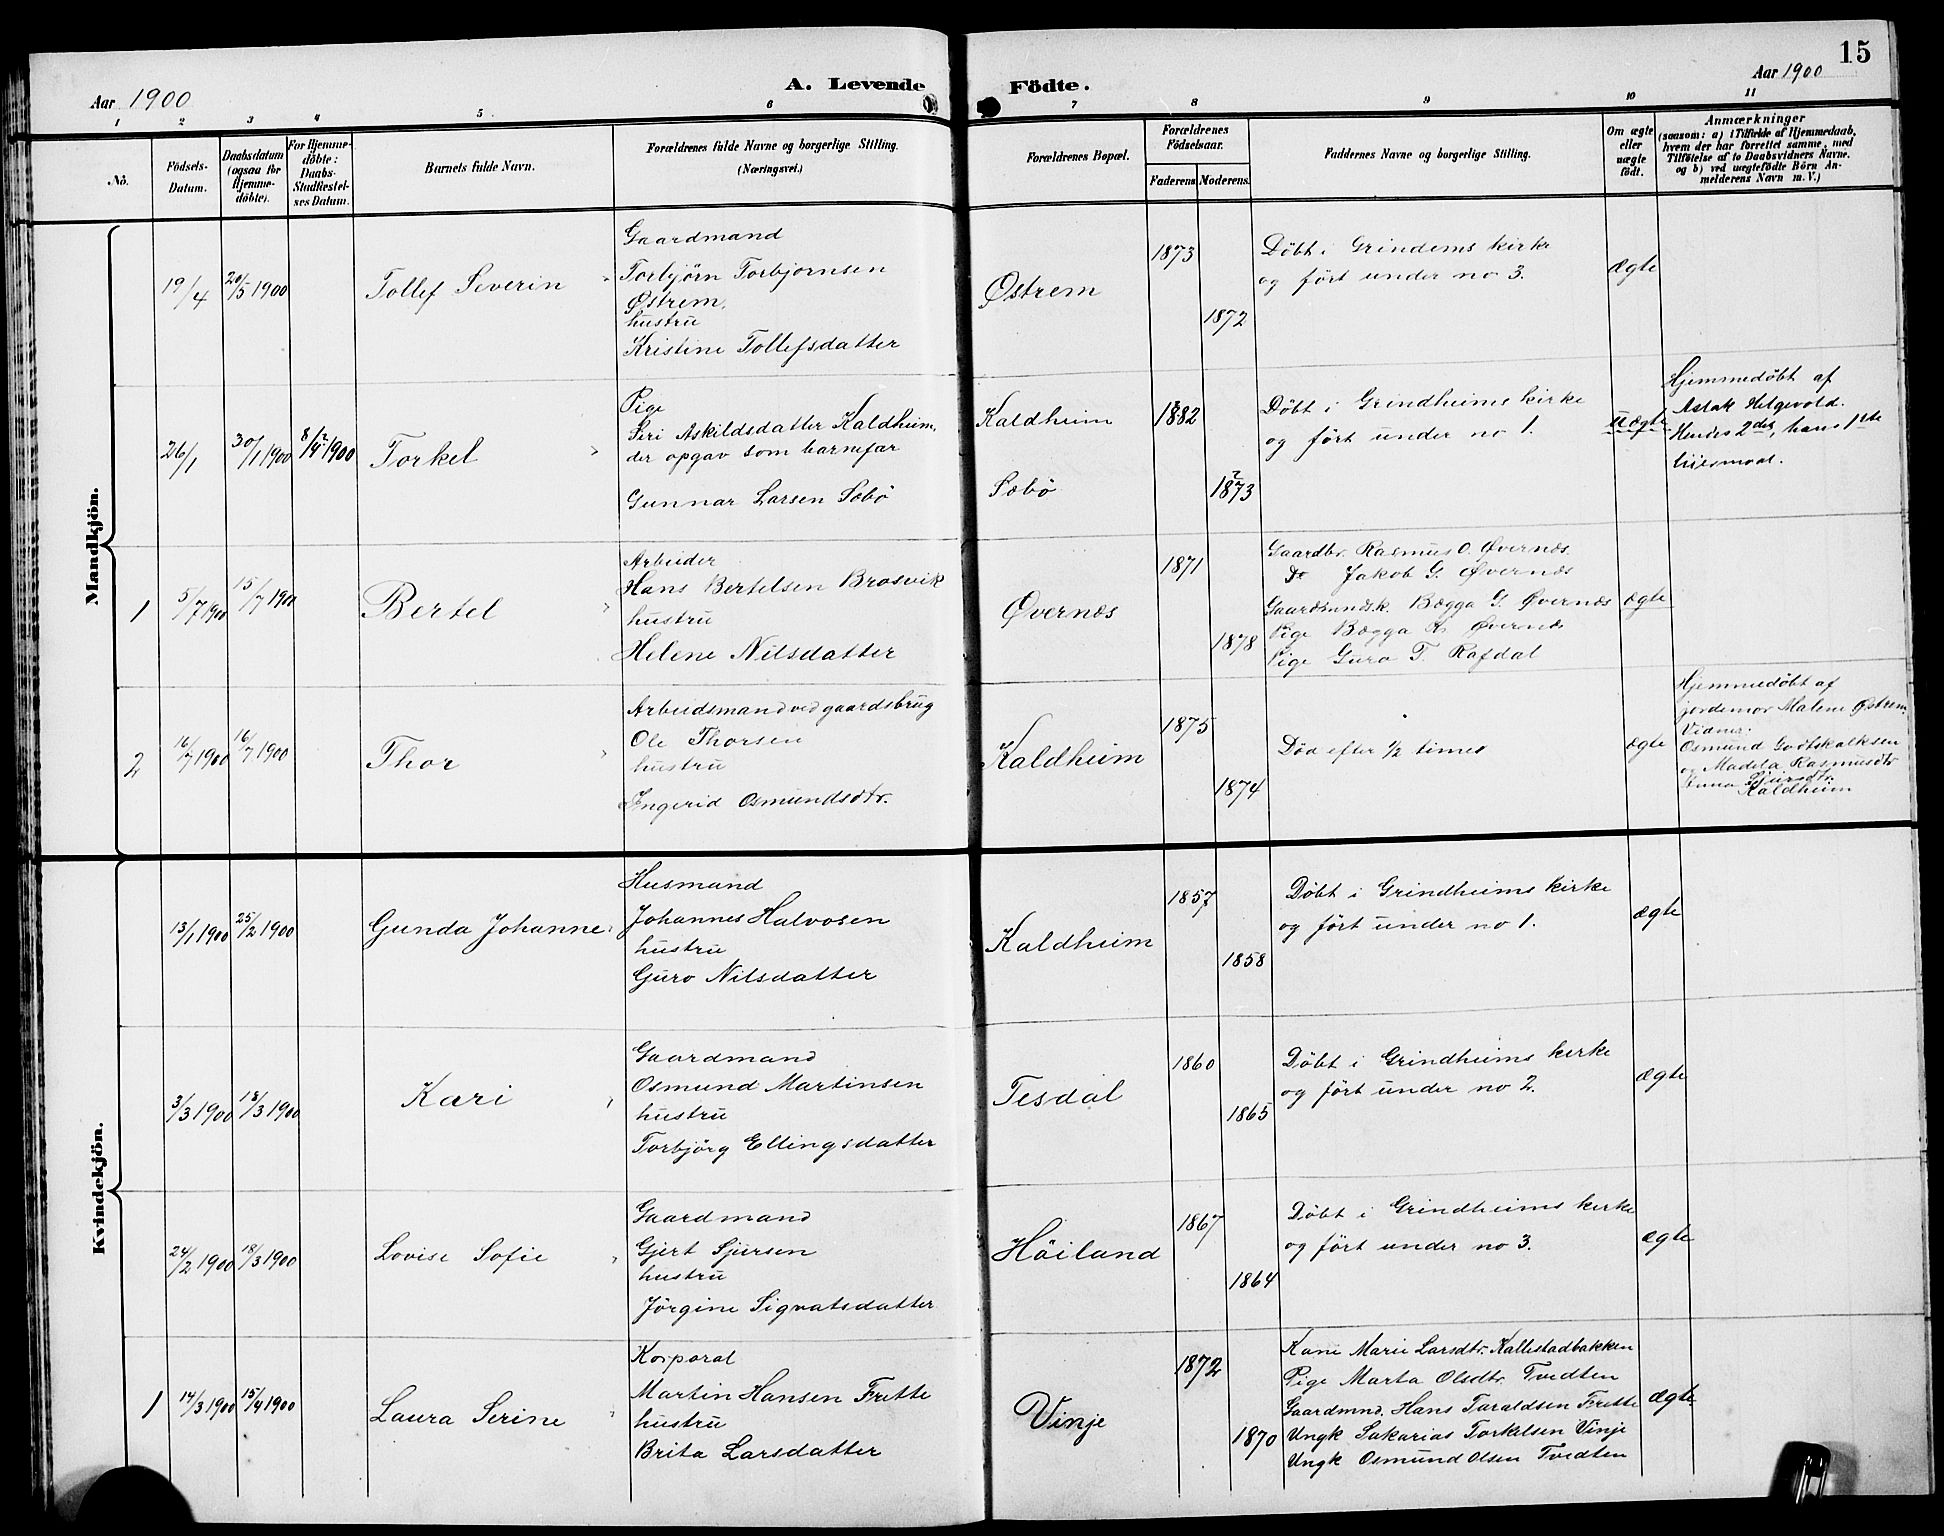 15
Aar 1900
A. Levende Födte.
Aar 1900
1 2 3 4 5 6 7 8 9 10 11
No.
Födsels-
Datum.
Daabsdatum
(ogsaa for
Hjemme-
döbte).
For Hjemme-
döbte:
Daabs-
Stadfæstel-
ses Datum.
Barnets fulde Navn.
Forældrenes fulde Navne og borgerlige Stilling.
(Næringsvei.)
Forældrenes Bopæl.
Forældrenes
Födselsaar.
Faderens Moderens.
Faddernes Navne og borgerlige Stilling.
Om ægte
eller
uægte
födt.
Anmærkninger
(saasom: a) i Tilfælde af Hjemmedaab,
hvem der har forrettet samme, med
Tilföielse af to Daabsvidners Navne.
og b) ved uægtefödte Börn An-
melderens Navn m. V.)
Mandkjön.
19/4
20/5 1900
Tollef Severin
Gaardmand
Torbjörn Torbjornsen
Østrem,
hustru
Kristine Tollefsdatter
Østrem
1873
1872
Døbt i Grindems kirke
og ført under no 3.
Ægte
26/1
30/1 1900
1900
Torkel
Pige
Seri Askildsdatter Kaldheim,
der opgav som barnefar
Gunnar Larsen Sæbø
Kaldheim
Sæbø
1882
1873
Døbt i Grindheims kirke
og ført under no 1.
uægte
Hjemmedøbt af
Aslak Helgevold.
Hendes 2den, hans 1ste
leiermaal.
1
5/7 1900
15/7 1900
Bertel
Arbeider
Hans Bertelsen Brosvik
hustru
Helene Nilsdatter
Øvernæs
1871
1878
Gaardbr. Rasmus O. Øvernæs
Do Jakob G. Øvernæs
Gaardmndsk. Bægga G. Øvernæs
Pige Bægga K. Øvernæs
Pige Guro T. Rafdal
ægte
2
16/7 1900
16/7 1900
Thor
Arbeidsmand ved gaardsbrug
Ole Thorsen
hustru
Ingerid Osmundsdtr.
Kaldheim
1875
1874
Død efter ½ times
ægte
Hjemmedøbt af
jordemor Malene Østrem.
Vidner:
Osmund Godtskalksen
og Madela Rasmusdtr
Anna Sjursdtr.
Kaldheim
Kvindekjön.
13/1 1900
25/2 1900
Gunda Johanne
Husmand
Johannes Halvosen
hustru
Guro Nilsdatter
Kaldheim
1857
1858
Døbt i Grindheims kirke
og ført under no 1.
ægte
3/3 1900
18/3 1900
Kari
Gaardmand
Osmund Martinsen
hustru
Torbjörg Ellingsdatter
Tesdal
1860
1865
Døbt i Grindheims kirke
og ført under no 2.
ægte
24/2 1900
18/3 1900
Lovise Sofie
Gaardmand
Gjert Sjursen
hustru
Jörgine Sigvatsdatter
Höiland
1867
1864
Døbt i Grindheims kirke
og ført under no 3.
ægte
1
14/3 1900
15/4 1900
Laura Serine
Korporal
Martin Hansen Frette
hustru
Brita Larsdatter
Vinje
1872
1870
Kone Marie Larsdtr. Kallestadbakken
Pige Marta Olsdtr. Tvedten
Gaardmnd. Hans Taraldsen Frette
Ungk Sakarias Torkelsen Vinje
Ungk Osmund Olsen Tvedten
ægte